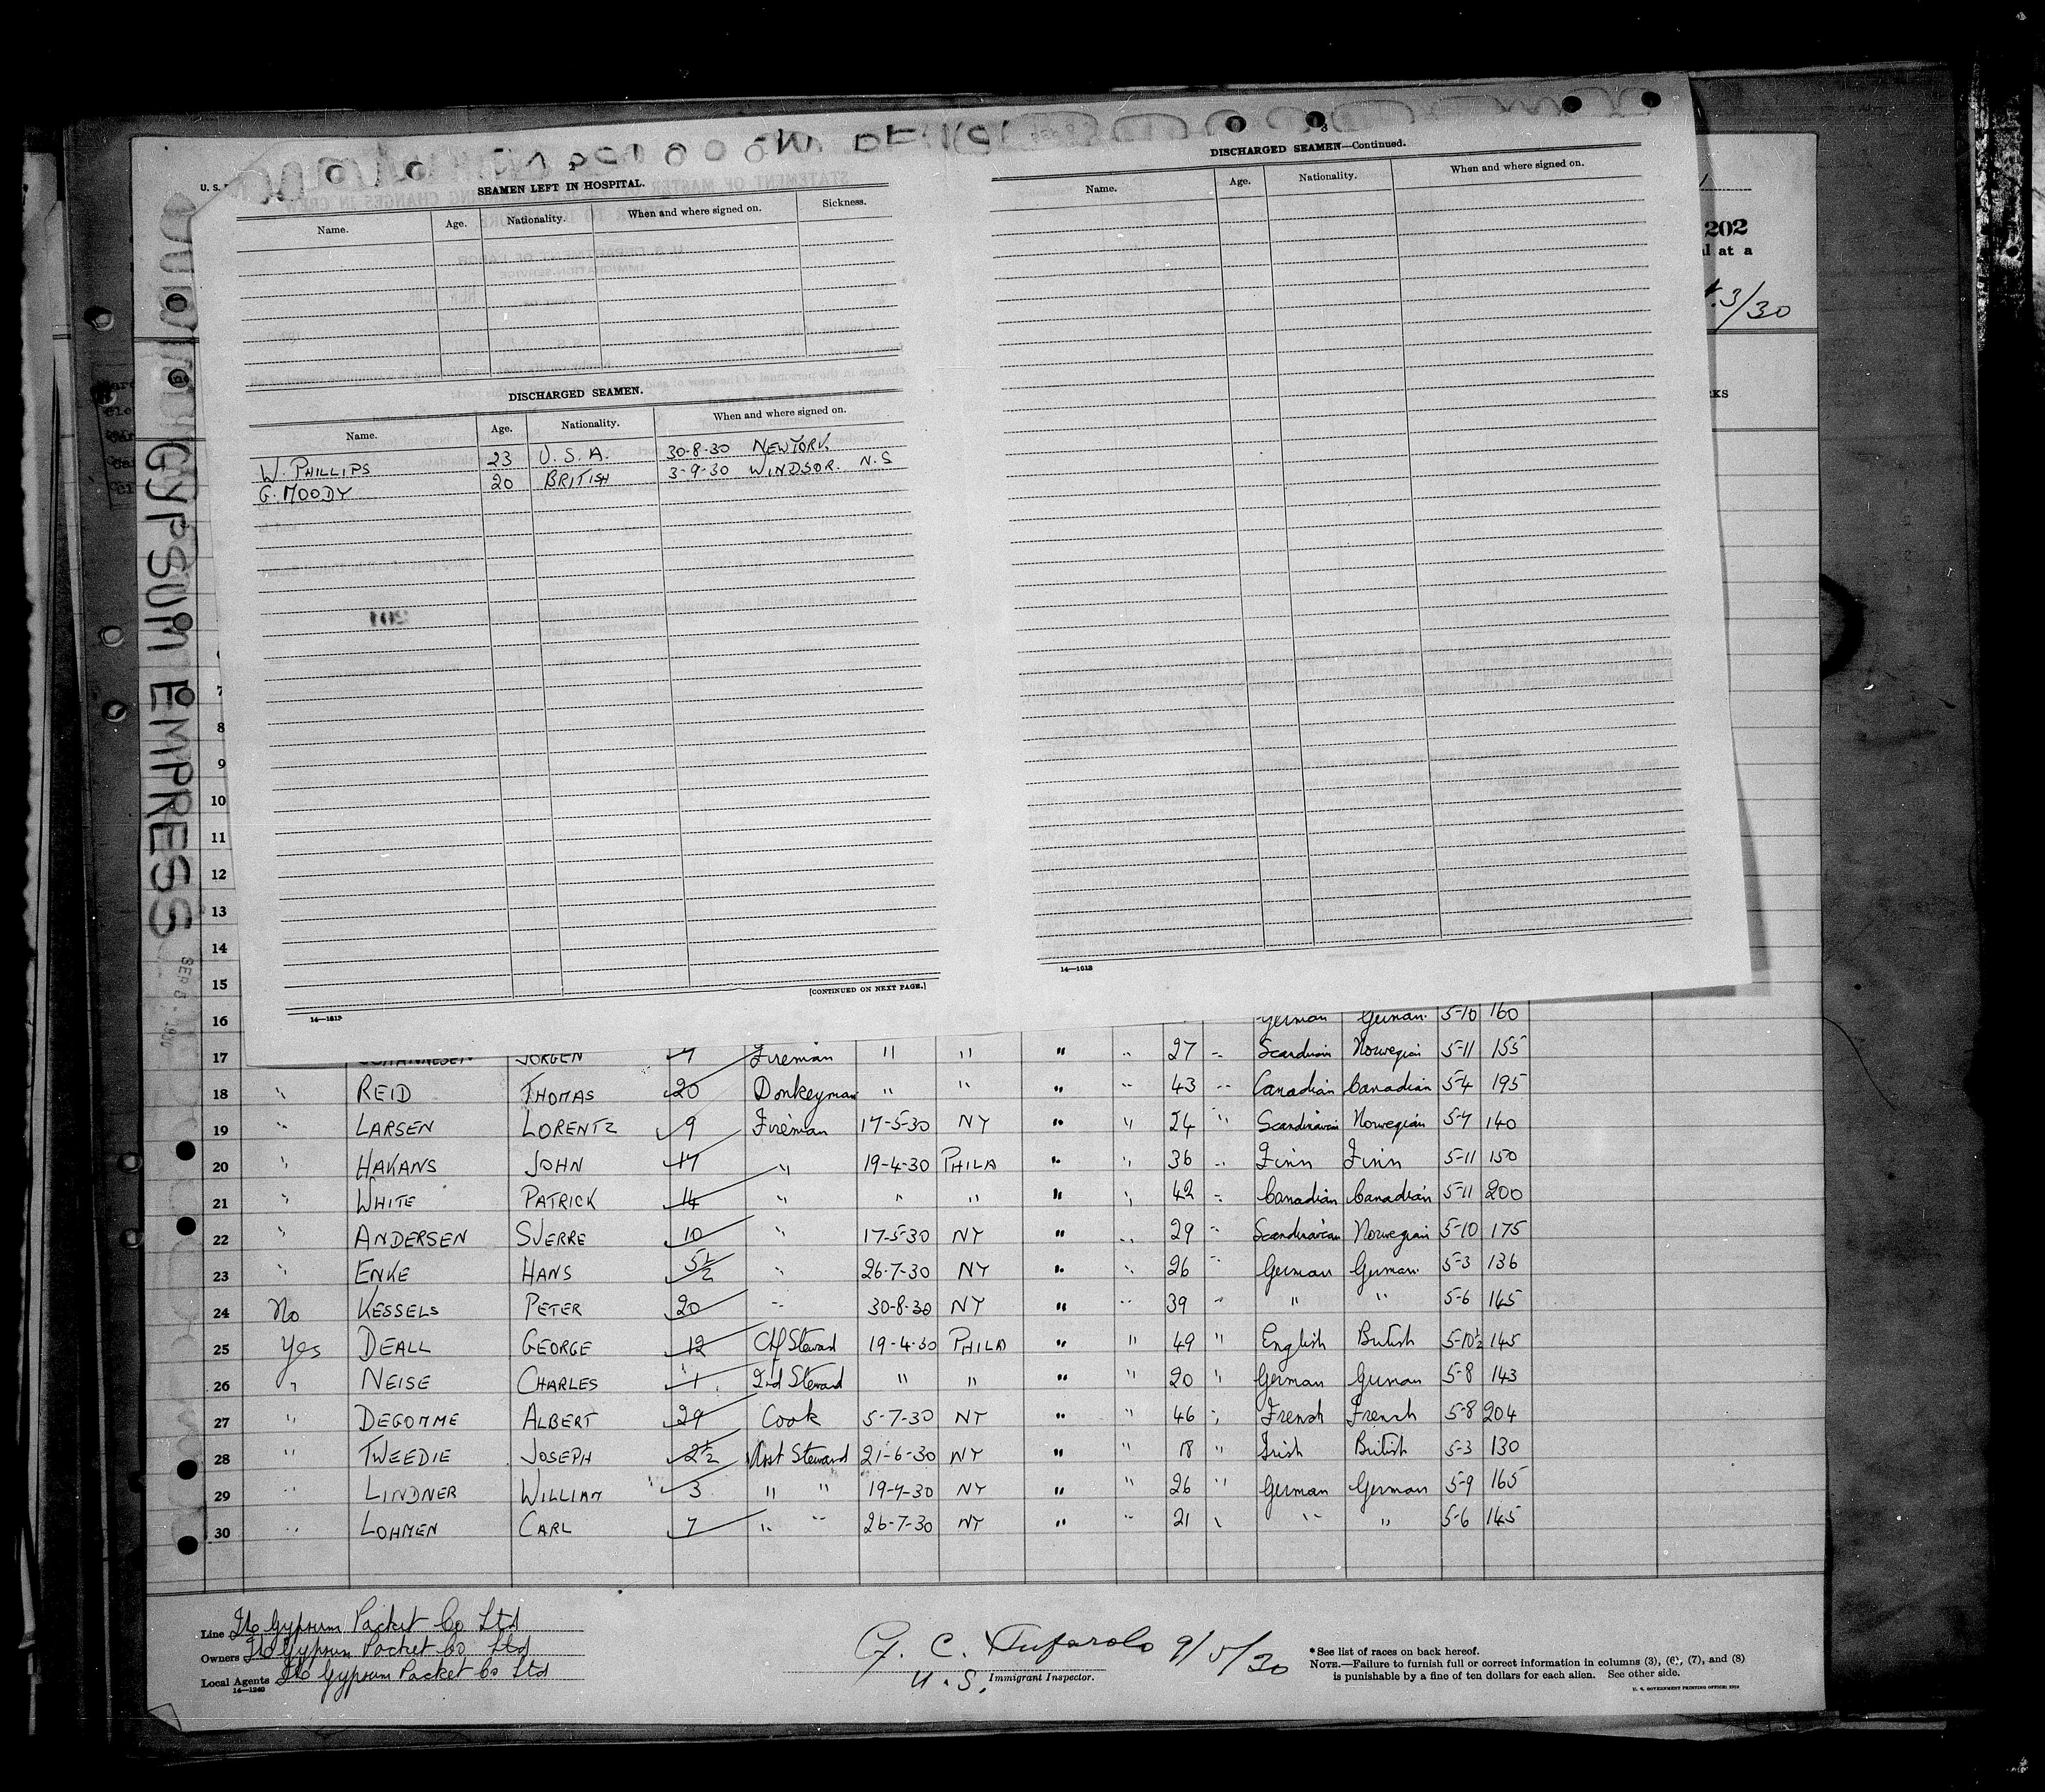 U. S.
SEAMEN LEFT IN HOSPITAL.
Name. Age. Nationality. When and where signed on. Sickness.
DISCHARGED SEAMEN.
Name. Age. Nationality. When and where signed on.
W. PHILLIPS 23 U.S.A. 30-8-30 NEWYORK
G. MOODY 20 BRITISH 3-9-30 WINDSOR. N.S
[CONTINUED ON NEXT PAGE.]
14—1613
3
DISCHARGED SEAMEN—Continued.
Name. Age. Nationality. When and where signed on.
14—1613
202
at a
3/30
GYPSUM EMPRESS
7
8
9
10
11
12
13
14
15
16 German German 5-10 160
17 JOHANNESEN JORGEN 7 Fireman " " " " 27 " Scandinavian Norwegian 5-11 155
18 " REID THOMAS 20 Donkeyman " " " " 43 " Canadian Canadian 5-4 195
19 " LARSEN LORENTZ 9 Fireman 17-5-30 NY " " 24 " Scandinavian Norwegian 5-7 140
20 " HAKANS JOHN 17 " 19-4-30 PHILA " " 36 " Finn Finn 5-11 150
21 " WHITE PATRICK 14 " " " " " 42 " Canadian Canadian 5-11 200
22 " ANDERSEN SJERRE 10 " 17-5-30 NY " " 29 " Scandinavian Norwegian 5-10 175
23 " ENKE HANS 5½ " 26-7-30 NY " " 26 " German German 5-3 136
24 No KESSELS PETER 20 " 30-8-30 NY " " 39 " " " 5-6 145
25 Yes DEALL GEORGE 12 Chf Steward 19-4-30 PHILA " " 49 " English British 5-10½ 145
26 " NEISE CHARLES 1 2nd Steward " " " " 20 " German German 5-8 143
27 " DEGOMME ALBERT 29 Cook 5-7-30 NY " " 46 " French French 5-8 204
28 " TWEEDIE JOSEPH 2½ Asst Steward 21-6-30 NY " " 18 " Irish British 5-3 130
29 " LINDNER WILLIAM 3 " " 19-7-30 NY " " 26 " German German 5-9 165
30 " LOHMEN CARL 7 " " 26-7-30 NY " " 21 " " " 5-6 145
Line The Gypsum Packet Co Ltd
Owners The Gypsum Packet Co Ltd
Local Agents The Gypsum Packet Co Ltd
14—1240
9/5/30
U.S. Immigrant Inspector.
*See list of races on back hereof.
NOTE.—Failure to furnish full or correct information in columns (3), (6), (7), and (8)
is punishable by a fine of ten dollars for each alien. See other side.